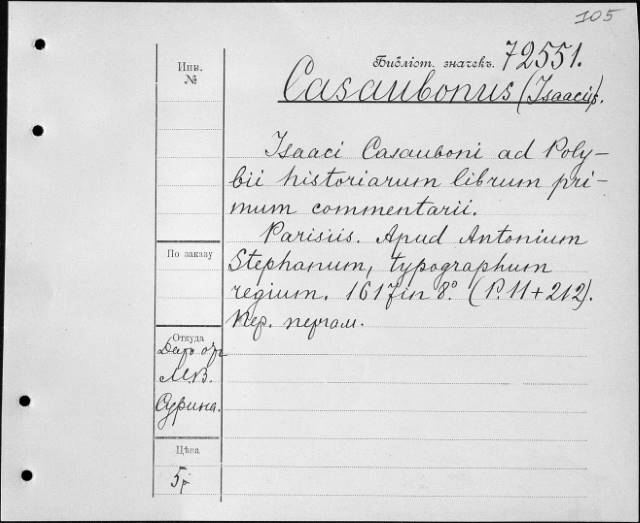 105
Библіот. значекъ. 72551.
Casaubonus (Isaacus).
Isaaci Casauboni ad Poly-
bii historiarum librum pri-
mum commentarii.
Parisiis. Apud Antonium
Stephanum, typographum
regium. 1617 in 8° (P. 11+212).
Кер. печат.
Инв.
№
По заказу
Откуда
Даръ отъ
М.В.
Сурина.
Цѣна
5 r